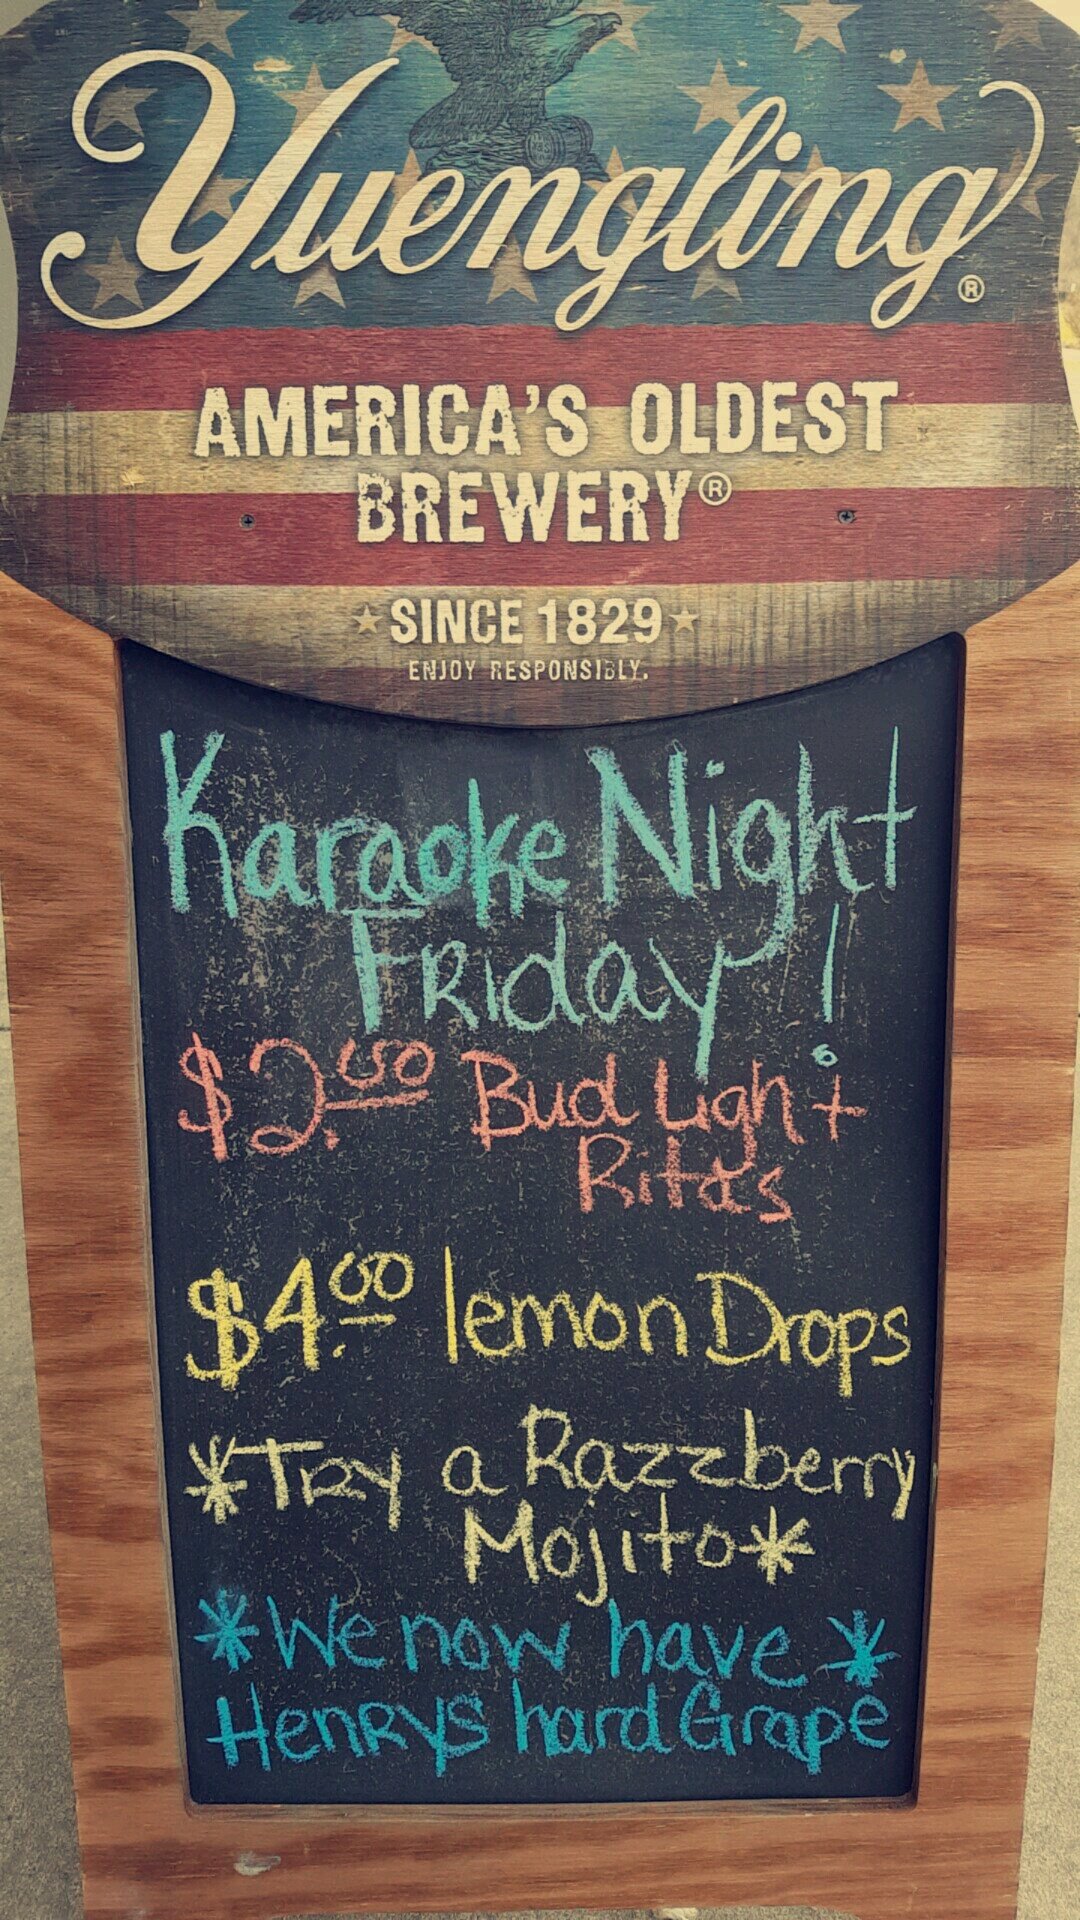 Yuengling®
AMERICA'S OLDEST
BREWERY®
SINCE 1829
ENJOY RESPONSIBLY.
Karaoke Night
FRiday !
$2.00 Bud Light
Ritas
$4.00 lemon Drops
*TRY a Razzberry
Mojito*
*We now have*
HenRYS hard Grape